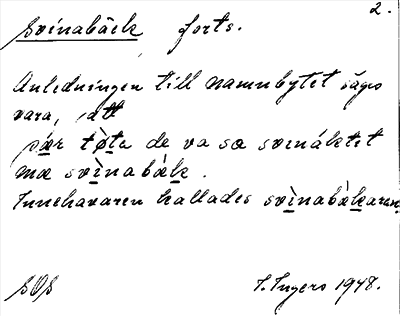 2.
Svinabäck forts.
Anledningen till namnbytet säges
vara, att
pær tøte de va sa svináktet
mæ svìnabæ̀k.
Innehavaren kallades svìnabæ̀karen.
SOS I. Ingers 1948.